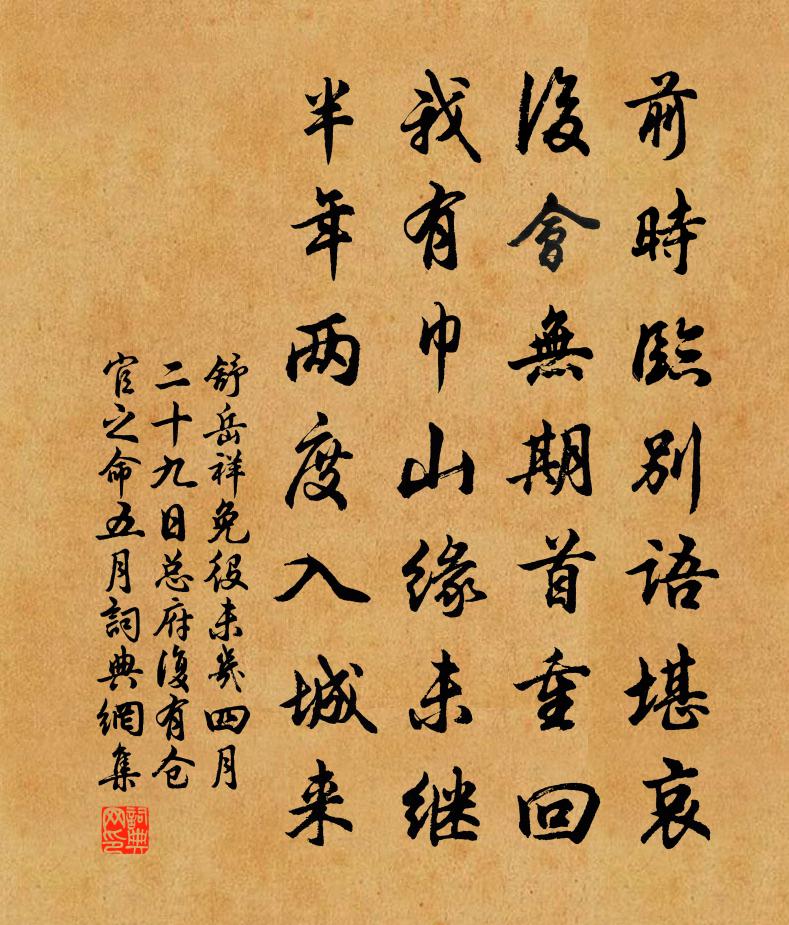 前時臨別語堪哀
後會無期首重回
我有巾山緣未继
半年两度入城来
舒岳祥免役未幾四月
二十九日总府復有仓
官之命五月詞典網集
詞典网印